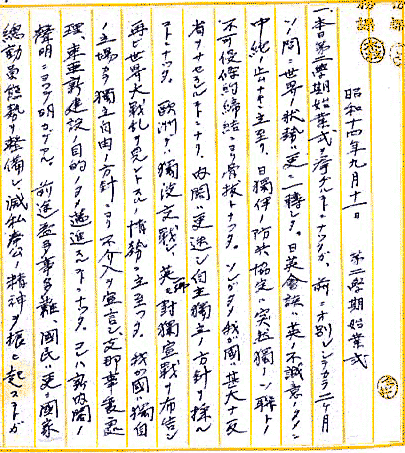 昭和十四年九月十一日 第二學期始業式
一、本日第二學期始業式ヲ挙ゲルコトトナツタガ、前ニオ別レシテカラ二ケ月
ノ間ニ世界ノ状勢ハ更ニ一轉シタ。日英會談ハ英ノ不誠意ノタメニ
中絶ノ止ナキニ至リ 日獨伊ノ防共協定ハ突如獨ソ聯ト
不可侵條約締結ニヨリ骨抜トナツタ。ソレガタメ我ガ國ハ甚大ナ反
省ヲナセルコトトナリ、内閣ハ更迭シ自主獨立ノ方針ヲ採ル
コトトナツタ。欧洲デハ獨波交戦シ英佛對獨宣戦ヲ布告シ
再ビ世界大戦乱ヲ見ントスルノ情勢ニ立至ツタ 我ガ國ハ獨自
ノ立場ヨリ獨立自由ノ方針ニヨリ不介入ヲ宣言シ支那事変處
理、東亜新建設ノ目的ノタメ邁進スルコトトナツタ。コレハ新内閣ノ
聲明ニヨツテ明カデアル。前途益々多事多難、國民ハ更ニ國家
總動員態勢ヲ整備シ滅私奉公ノ精神ヲ振ヒ起スコトガ